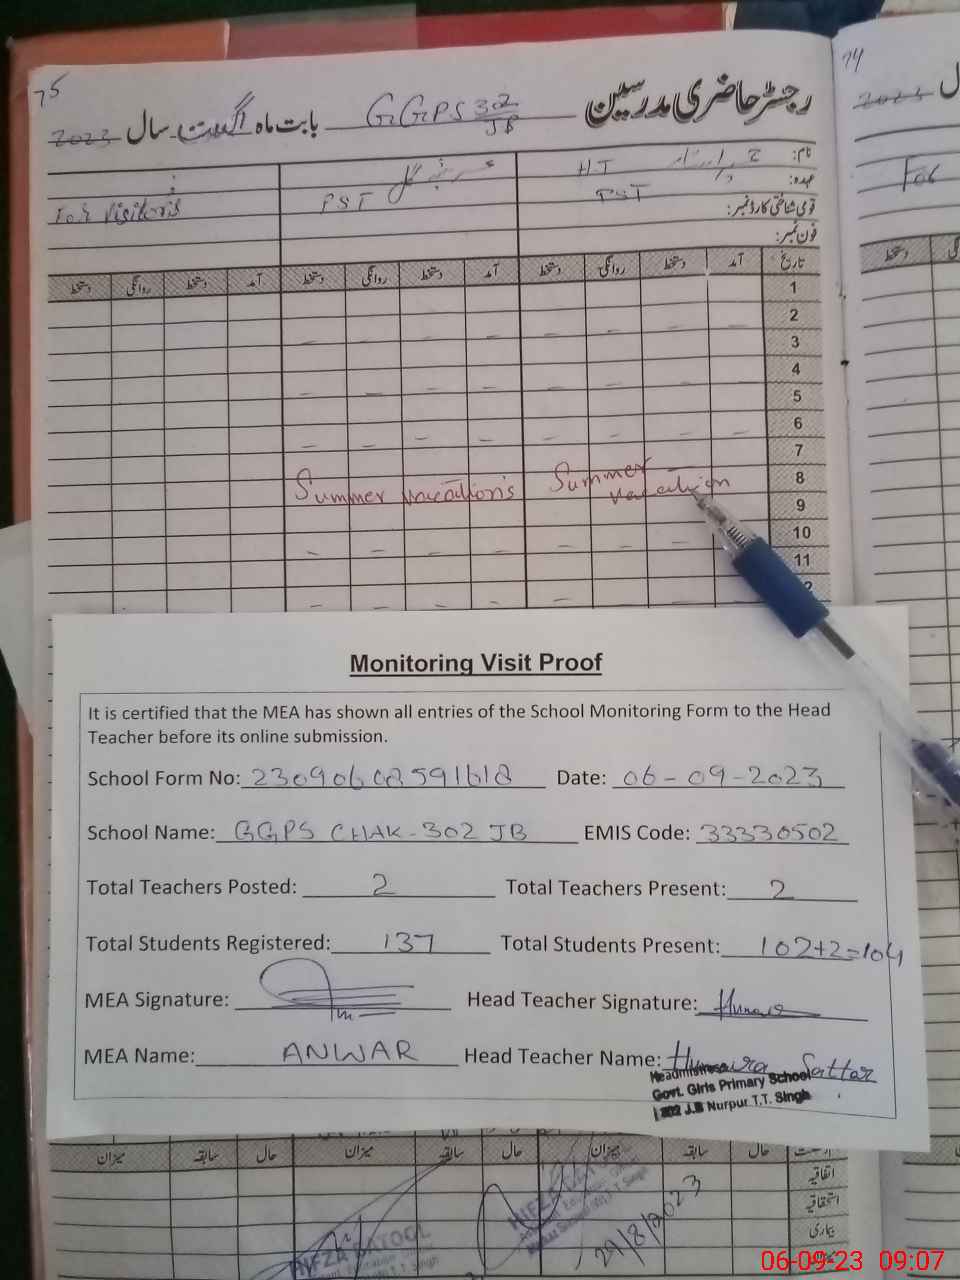 75
رجسٹر حاضری مدرسین GGPS 302 JB بابت ماہ اگست سال 2023
74
2023
نام:
عہدہ: H.T
PST PST For Visitors
قومی شناختی کارڈ نمبر:
فون نمبر:
For
تاریخ آمد دستخط روانگی دستخط آمد دستخط روانگی دستخط آمد دستخط روانگی دستخط
دستخط
1
2
3
4
5
6
7
8
Summer vacation's Summer vacation
9
10
11
Monitoring Visit Proof
It is certified that the MEA has shown all entries of the School Monitoring Form to the Head
Teacher before its online submission.
School Form No: 23090602591618 Date: 06-09-2023
School Name: GGPS CHAK-302 JB EMIS Code: 33330502
Total Teachers Posted: 2 Total Teachers Present: 2
Total Students Registered: 137 Total Students Present: 102+2=104
MEA Signature: Head Teacher Signature: Humaira
MEA Name: ANWAR Head Teacher Name: Humaira Sattar
Headmistress
Govt. Girls Primary School
302 J.B Nurpur T.T. Singh
حال سابقہ میزان حال سابقہ میزان حال سابقہ میزان
اتفاقیہ
استحقاقیہ
بیماری
29/8/2023
06-09-23 09:07